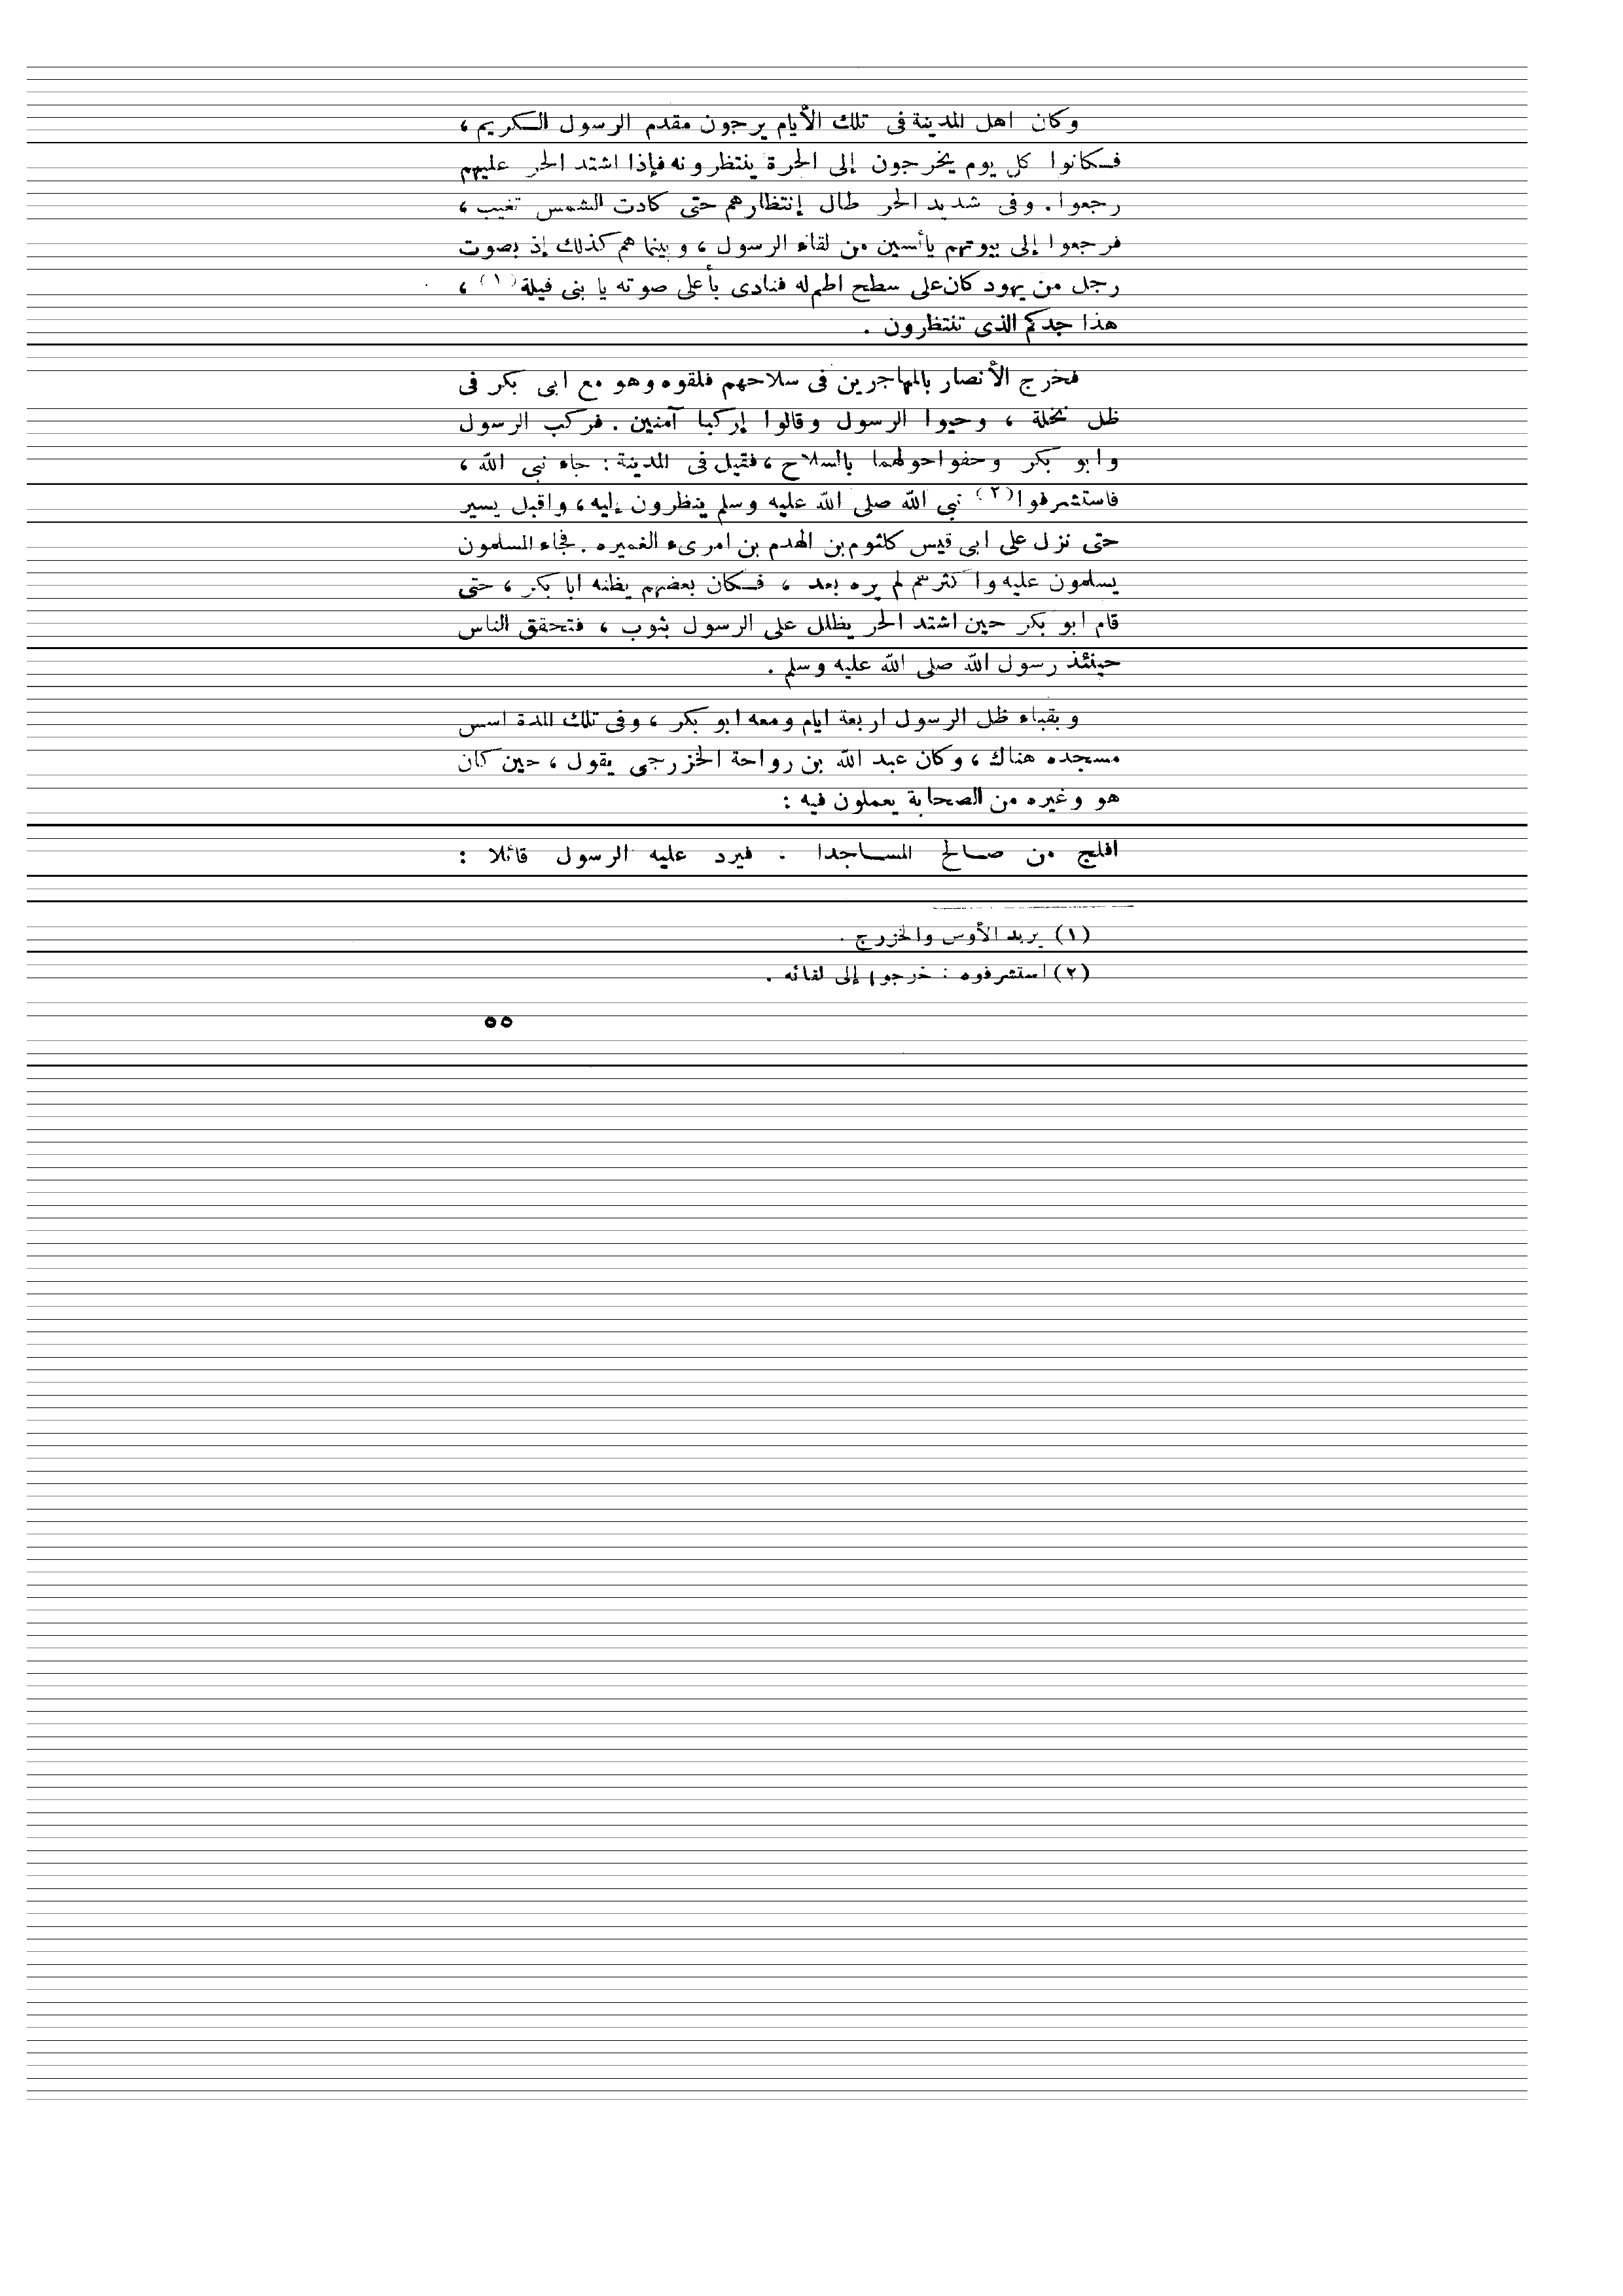 وكان اهل المدينة فى تلك الأيام يرجون مقدم الرسول الكريم ،
فكانوا كل يوم يخرجون إلى الحرة ينتظرونه فإذا اشتد الحر عليهم
رجعوا . وفى شديد الحر طال إنتظارهم حتى كادت الشمس تغيب ،
فرجعوا إلى بيوتهم يائسين من لقاء الرسول ، وبينما هم كذلك إذ بصوت
رجل من يهود كان على سطح اطم له فنادى بأعلى صوته يا بنى قيلة (١) ،
هذا جدكم الذى تنتظرون .
فخرج الأنصار بالمهاجرين فى سلاحهم فلقوه وهو مع ابى بكر فى
ظل نخلة ، وحيوا الرسول وقالوا إركبا آمنين . فركب الرسول
وابو بكر وحفوا حولهما بالسلاح ، فقيل فى المدينة : جاء نبى الله ،
فاستشرفوا (٢) نبى الله صلى الله عليه وسلم ينظرون إليه ، واقبل يسير
حتى نزل على ابى قيس كلثوم بن الهدم بن امرىء الغميره . فجاء المسلمون
يسلمون عليه واكثرهم لم يره بعد ، فكان بعضهم يظنه ابا بكر ، حتى
قام ابو بكر حين اشتد الحر يظلل على الرسول بثوب ، فتحقق الناس
حينئذ رسول الله صلى الله عليه وسلم .
وبقباء ظل الرسول اربعة ايام ومعه ابو بكر ، وفى تلك المدة اسس
مسجده هناك ، وكان عبد الله بن رواحة الخزرجى يقول ، حين كان
هو وغيره من الصحابة يعملون فيه :
افلح من صالح المساجدا . فيرد عليه الرسول قائلا :
(١) يريد الأوس والخزرج .
(٢) استشرفوه : خرجوا إلى لقائه .
٥٥